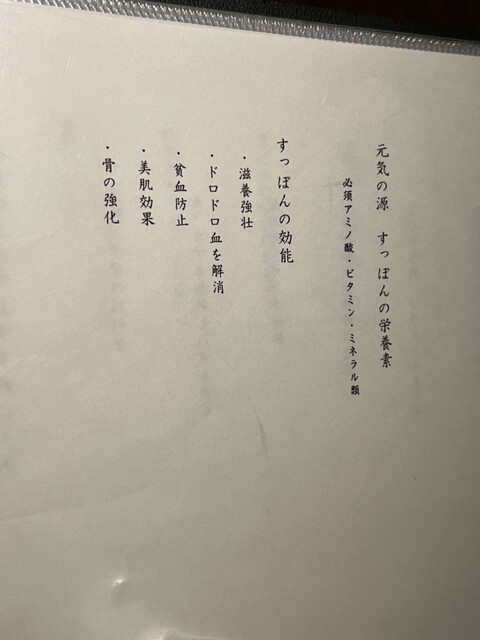 元気の源　すっぽんの栄養素
必須アミノ酸・ビタミン・ミネラル類
すっぽんの効能
・滋養強壮
・ドロドロ血を解消
・貧血防止
・美肌効果
・骨の強化